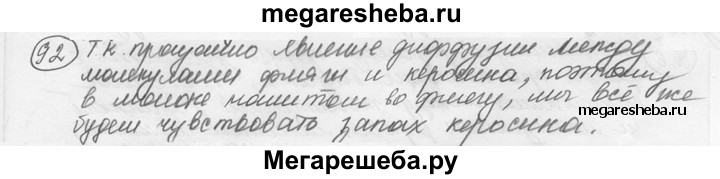 megaresheba.ru
92) Т.к. произошло явление диффузии между
молекулами фляги и керосина, поэтому
в молоке налитом во флягу, мы всё же
будем чувствовать запах керосина.
megaresheba.ru
Мегарешеба.ру